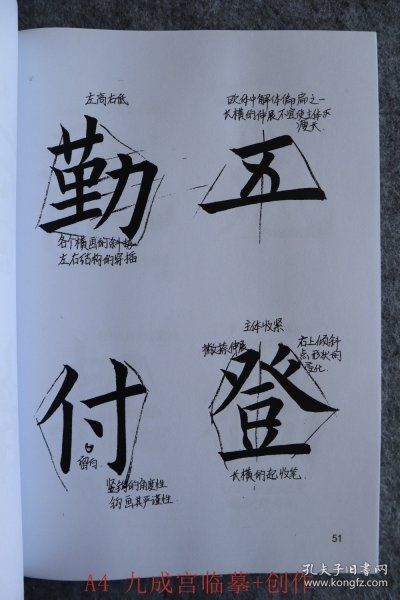 左高右低
勤
各个横画的斜势
左右结构的穿插
欧体中解体偏扁之一
长横的伸展不宜使主体
瘦长
五
付
留白
竖钩的角度性
钩画其严谨性
主体收紧
撇捺伸展
右上倾斜
点形状的
变化
登
长横的起收笔
51
A4 九成宫临摹+创作
孔夫子旧书网
www.kongfz.com